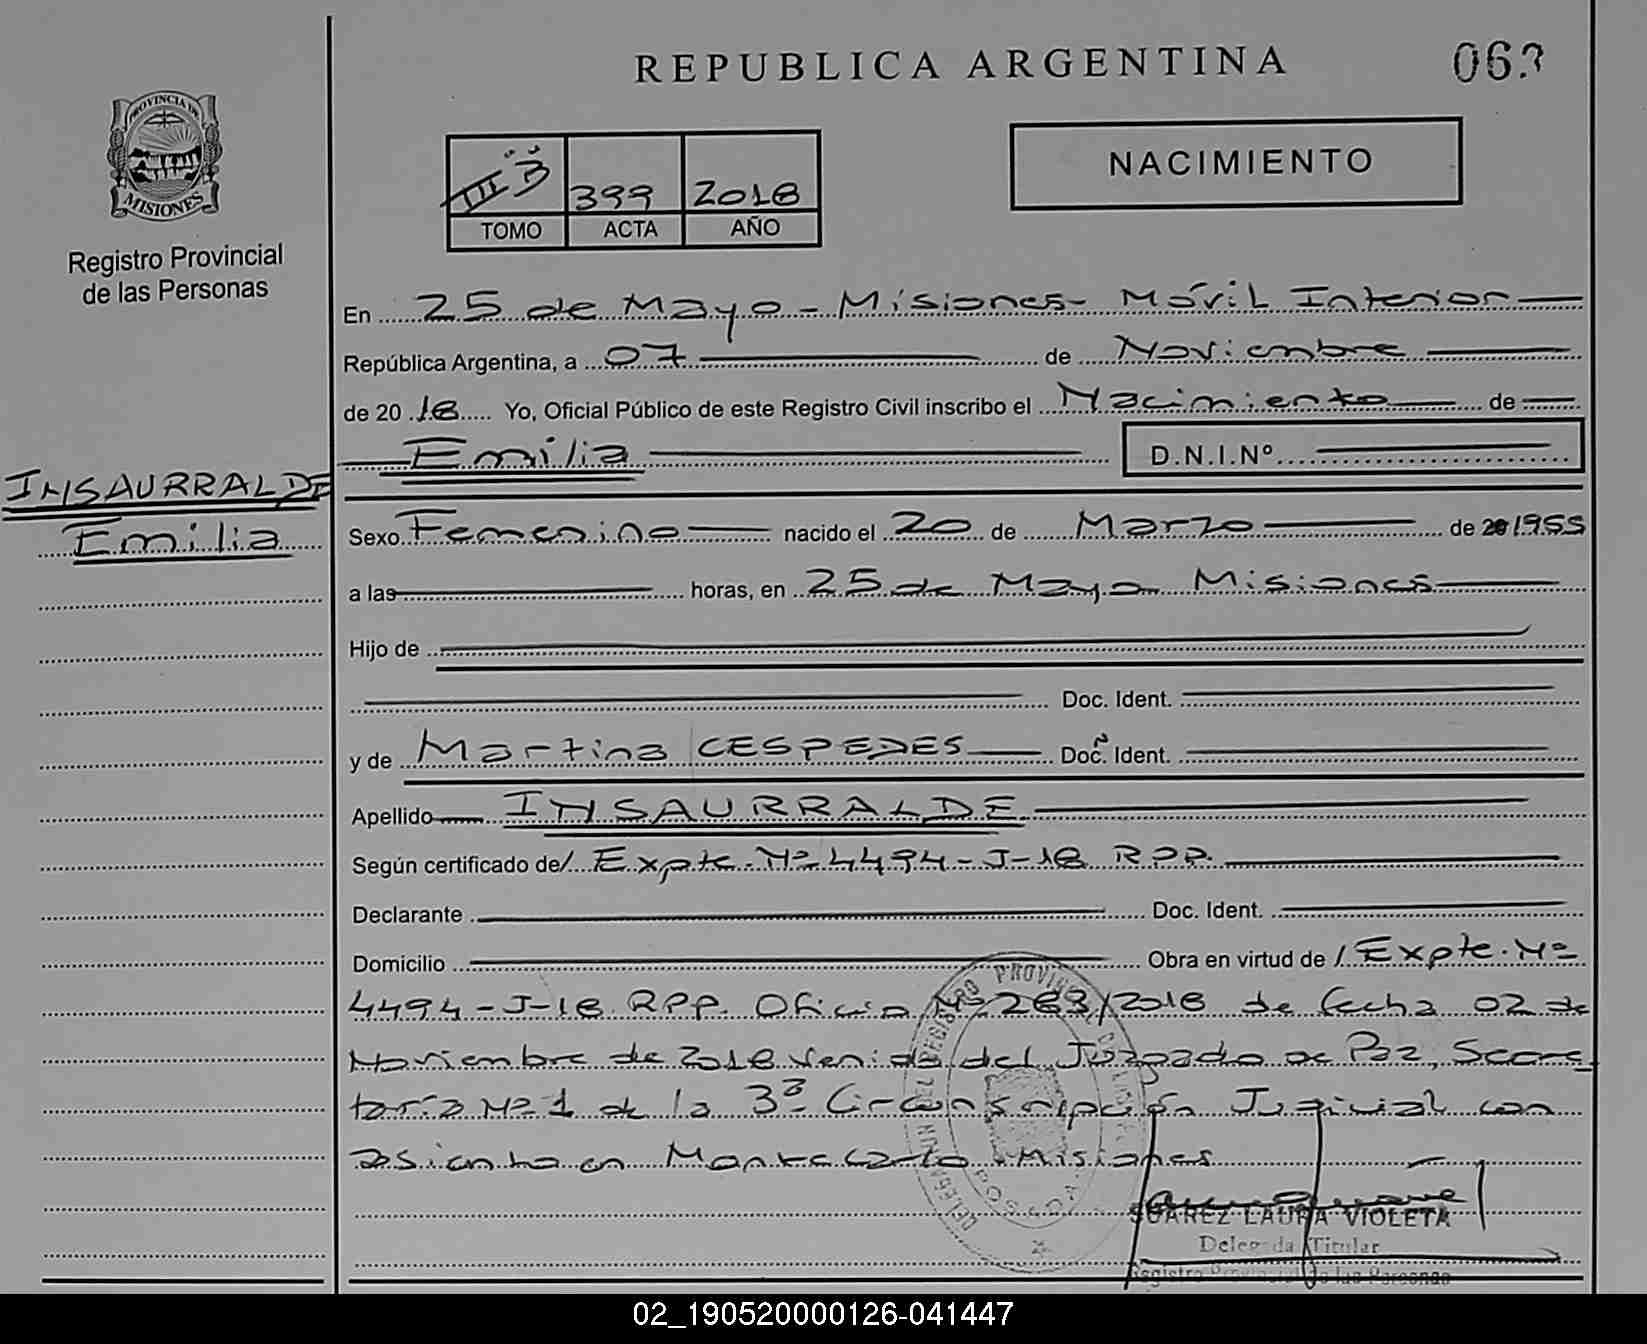 REPUBLICA ARGENTINA
PROVINCIA DE
MISIONES
Registro Provincial
de las Personas
III 3
399
2018
TOMO
ACTA
AÑO
NACIMIENTO
En 25 de Mayo - Misiones - Móvil Interior
República Argentina, a 07 de Noviembre
de 2018 Yo, Oficial Público de este Registro Civil inscribo el Nacimiento de
Emilia D.N.I.Nº
INSAURRALDE
Emilia
Sexo Femenino nacido el 20 de Marzo de 1955
a las horas, en 25 de Mayo Misiones
Hijo de
Doc. Ident.
y de Martina CESPEDES Doc. Ident.
Apellido INSAURRALDE
Según certificado de/ Expte. Nº 4494-J-18 RPP.
Declarante Doc. Ident.
Domicilio Obra en virtud de /. Expte. Nº
4494-J-18 RPP. Oficio Nº 263/2018 de fecha 02 de
Noviembre de 2018 venido del Juzgado de Paz, Secre
taría Nº 1 de la 3ª Circunscripción Judicial con
asiento en Montecarlo Misiones
SUAREZ LAURA VIOLETA
Delegada Titular
Registro Provincial de las Personas
02_190520000126-041447